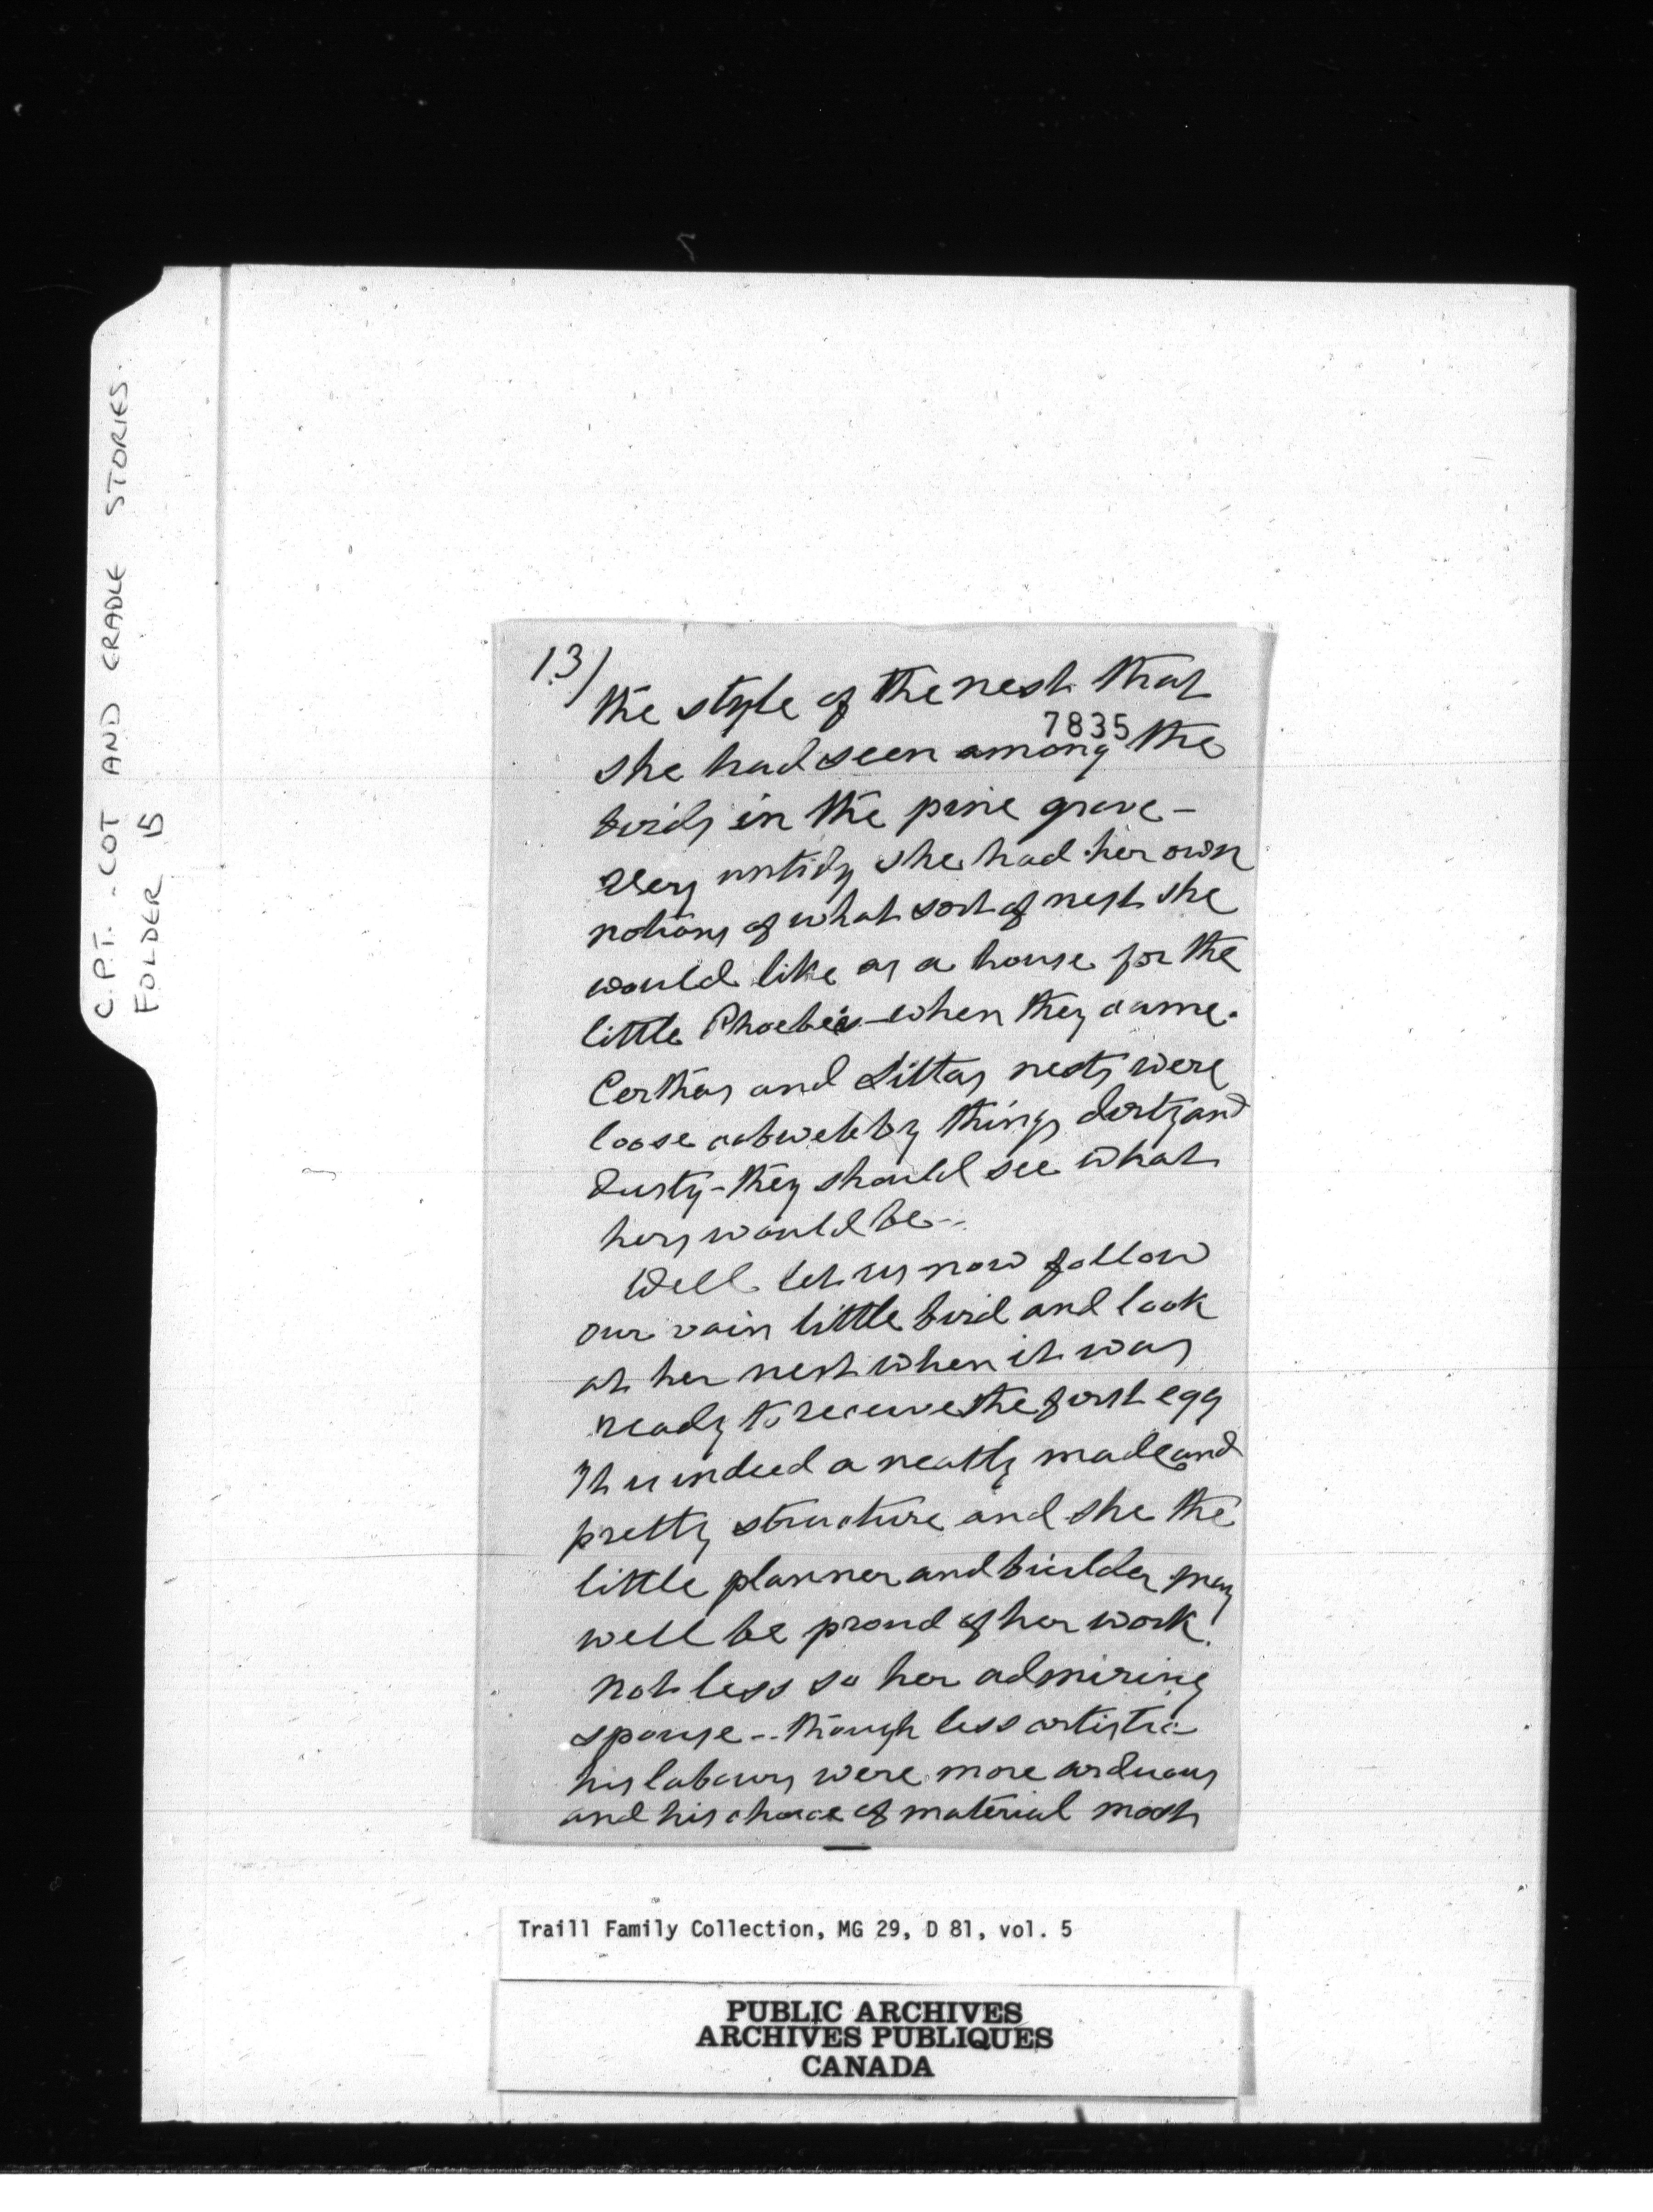 C.P.T. - COT AND CRADLE STORIES.
FOLDER 15
13/
the style of the nest that
7835
she had seen among the
birds in the pine grove -
Very untidy she had her own
notions of what sort of nest she
would like as a house for the
little Phoebes - when they came.
Certhas and Sittas nests were
loose cobwebby things dirty and
dusty - they should see what
hers would be --
Well let us now follow
our vain little bird and look
at her nest when it was
ready to receive the first egg
It is indeed a neatly made and
pretty structure and she the
little planner and builder may
well be proud of her work!
not less so her admiring
spouse -- though less artistic
his labours were more arduous
and his choice of material most
Traill Family Collection, MG 29, D 81, vol. 5
PUBLIC ARCHIVES
ARCHIVES PUBLIQUES
CANADA